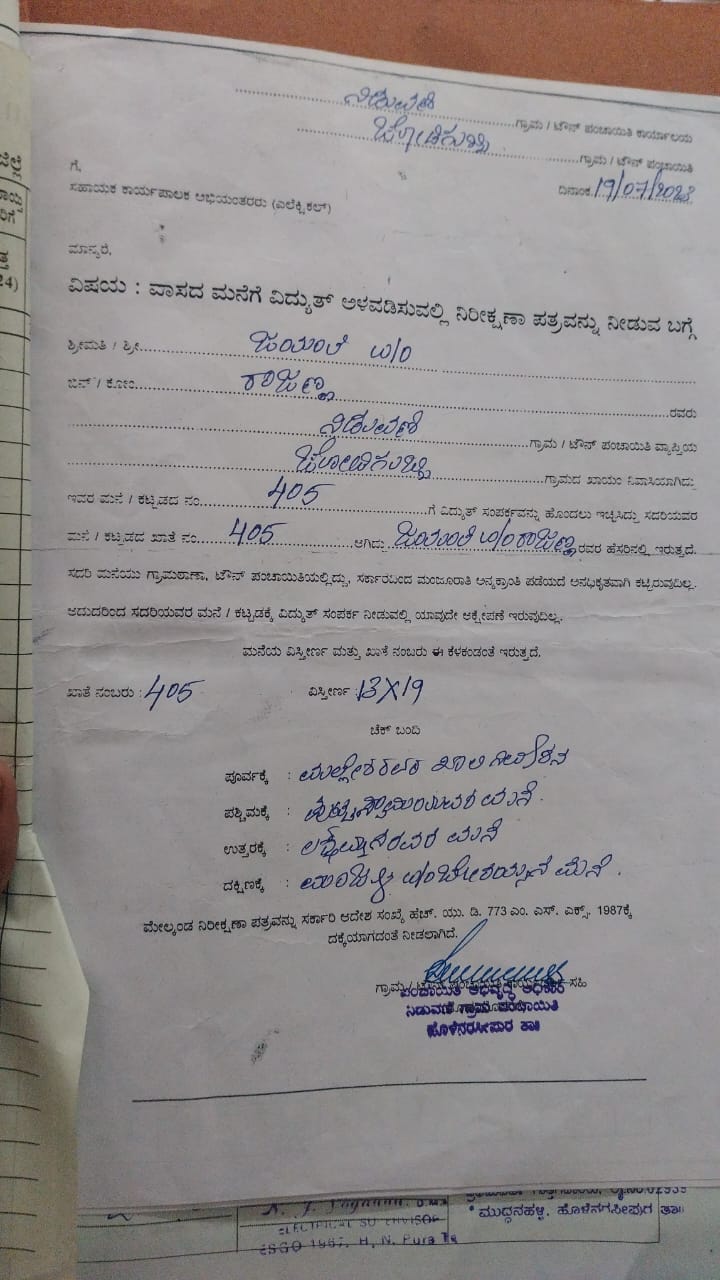 ನಿಡುವಣಿ ಗ್ರಾಮ / ಟೌನ್ ಪಂಚಾಯಿತಿ ಕಾರ್ಯಾಲಯ
ಗ್ರಾಮ / ಟೌನ್ ಪಂಚಾಯಿತಿ
ಗೆ,
ದಿನಾಂಕ 19/07/2023
ಸಹಾಯಕ ಕಾರ್ಯಪಾಲಕ ಅಭಿಯಂತರರು (ಎಲೆಕ್ಟ್ರಿಕಲ್)
ಮಾನ್ಯರೆ,
ವಿಷಯ : ವಾಸದ ಮನೆಗೆ ವಿದ್ಯುತ್ ಅಳವಡಿಸುವಲ್ಲಿ ನಿರೀಕ್ಷಣಾ ಪತ್ರವನ್ನು ನೀಡುವ ಬಗ್ಗೆ
ಶ್ರೀಮತಿ / ಶ್ರೀ ಜಯಂತಿ w/o
ಬಿನ್ / ಕೋಂ ರಾಜಣ್ಣ ರವರು
ನಿಡುವಣಿ ಗ್ರಾಮ / ಟೌನ್ ಪಂಚಾಯಿತಿ ವ್ಯಾಪ್ತಿಯ
ಗ್ರಾಮದ ಖಾಯಂ ನಿವಾಸಿಯಾಗಿದ್ದು
ಇವರ ಮನೆ / ಕಟ್ಟಡದ ನಂ. 405 ಗೆ ವಿದ್ಯುತ್ ಸಂಪರ್ಕವನ್ನು ಹೊಂದಲು ಇಚ್ಛಿಸಿದ್ದು ಸದರಿಯವರ
ಮನೆ / ಕಟ್ಟಡದ ಖಾತೆ ನಂ. 405 ಆಗಿದ್ದು ಜಯಂತಿ w/o ರಾಜಣ್ಣ ರವರ ಹೆಸರಿನಲ್ಲಿ ಇರುತ್ತದೆ.
ಸದರಿ ಮನೆಯು ಗ್ರಾಮಠಾಣಾ, ಟೌನ್ ಪಂಚಾಯಿತಿಯಲ್ಲಿದ್ದು, ಸರ್ಕಾರದಿಂದ ಮಂಜೂರಾತಿ ಅನ್ಯಕ್ರಾಂತಿ ಪಡೆಯದೆ ಅನಧಿಕೃತವಾಗಿ ಕಟ್ಟಿರುವುದಿಲ್ಲ.
ಆದುದರಿಂದ ಸದರಿಯವರ ಮನೆ / ಕಟ್ಟಡಕ್ಕೆ ವಿದ್ಯುತ್ ಸಂಪರ್ಕ ನೀಡುವಲ್ಲಿ ಯಾವುದೇ ಆಕ್ಷೇಪಣೆ ಇರುವುದಿಲ್ಲ.
ಮನೆಯ ವಿಸ್ತೀರ್ಣ ಮತ್ತು ಖಾತೆ ನಂಬರು ಈ ಕೆಳಕಂಡಂತೆ ಇರುತ್ತದೆ.
ಖಾತೆ ನಂಬರು : 405 ವಿಸ್ತೀರ್ಣ : 13X19
ಚೆಕ್ ಬಂದಿ
ಪೂರ್ವಕ್ಕೆ : ಖಾಲಿ ನಿವೇಶನ
ಪಶ್ಚಿಮಕ್ಕೆ : ಮನೆ.
ಉತ್ತರಕ್ಕೆ : ಮನೆ
ದಕ್ಷಿಣಕ್ಕೆ : ಮನೆ.
ಮೇಲ್ಕಂಡ ನಿರೀಕ್ಷಣಾ ಪತ್ರವನ್ನು ಸರ್ಕಾರಿ ಆದೇಶ ಸಂಖ್ಯೆ ಹೆಚ್. ಯು. ಡಿ. 773 ಎಂ. ಎಸ್. ಎಕ್ಸ್. 1987ಕ್ಕೆ
ದಕ್ಕೆಯಾಗದಂತೆ ನೀಡಲಾಗಿದೆ.
ಗ್ರಾಮ / ಟೌನ್ ಪಂಚಾಯಿತಿ ಸಹಿ
ಪಂಚಾಯಿತಿ ಅಭಿವೃದ್ಧಿ ಅಧಿಕಾರಿ
ನಿಡುವಣಿ ಗ್ರಾಮ ಪಂಚಾಯಿತಿ
ಹೊಳೆನರಸೀಪುರ ತಾ||
ELECTRICAL SU
1987, H. N. Pura
ಮುದ್ದನಹಳ್ಳಿ, ಹೊಳೆನರಸೀಪುರ ತಾ||